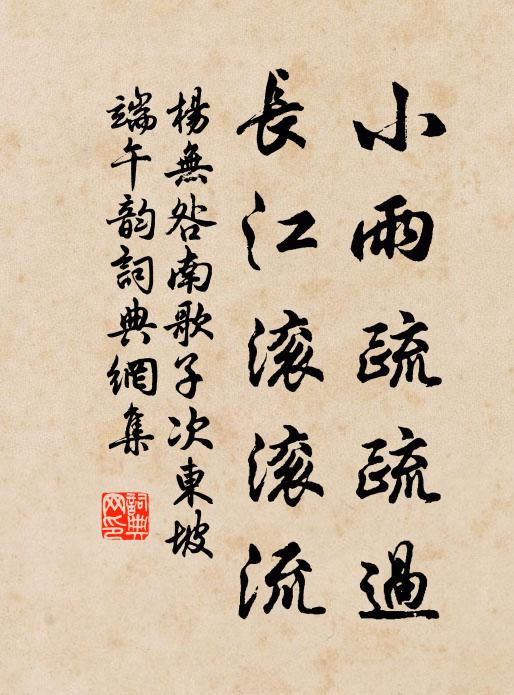 小雨疏疏過
長江滚滚流
楊無咎南歌子次東坡
端午韵詞典網集
詞典网印